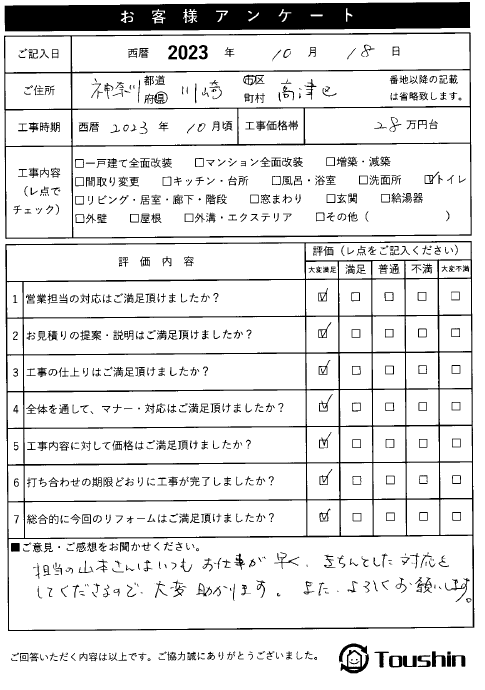 お客様アンケート
ご記入日 西暦 2023 年 10 月 18 日
ご住所 神奈川 都道府県 川崎 市区町村 高津区 番地以降の記載は省略致します。
工事時期 西暦 2023 年 10 月頃 工事価格帯 28 万円台
工事内容(レ点でチェック)
□一戸建て全面改装 □マンション全面改装 □増築・減築
□間取り変更 □キッチン・台所 □風呂・浴室 □洗面所 ☑トイレ
□リビング・居室・廊下・階段 □窓まわり □玄関 □給湯器
□外壁 □屋根 □外溝・エクステリア □その他( )
評価内容 評価(レ点をご記入ください)
大変満足 満足 普通 不満 大変不満
1 営業担当の対応はご満足頂けましたか? ☑ □ □ □ □
2 お見積りの提案・説明はご満足頂けましたか? ☑ □ □ □ □
3 工事の仕上りはご満足頂けましたか? ☑ □ □ □ □
4 全体を通して、マナー・対応はご満足頂けましたか? ☑ □ □ □ □
5 工事内容に対して価格はご満足頂けましたか? ☑ □ □ □ □
6 打ち合わせの期限どおりに工事が完了しましたか? ☑ □ □ □ □
7 総合的に今回のリフォームはご満足頂けましたか? ☑ □ □ □ □
■ご意見・ご感想をお聞かせください。
担当の山本さんはいつもお仕事が早く、きちんとした対応を
してくださるので、大変助かります。また、よろしくお願いします。
ご回答いただく内容は以上です。ご協力誠にありがとうございました。
Toushin